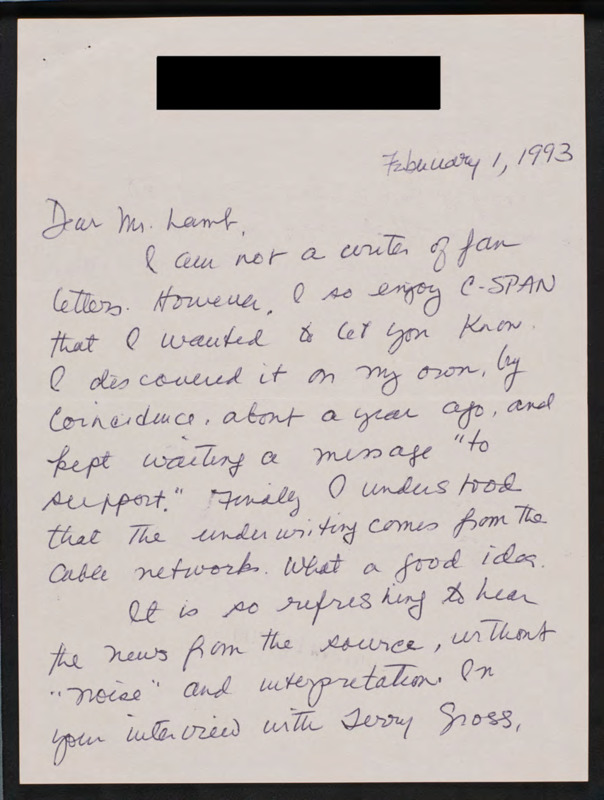 February 1, 1993
Dear Mr. Lamb,
I am not a writer of fan
letters. However, I so enjoy C-SPAN
that I wanted to let you know.
I discovered it on my own, by
coincidence, about a year ago, and
kept waiting a message "to
support." Finally I understood
that the underwriting comes from the
cable networks. What a good idea.
It is so refreshing to hear
the news from the source, without
"noise" and interpretation. In
your interview with Terry Gross,